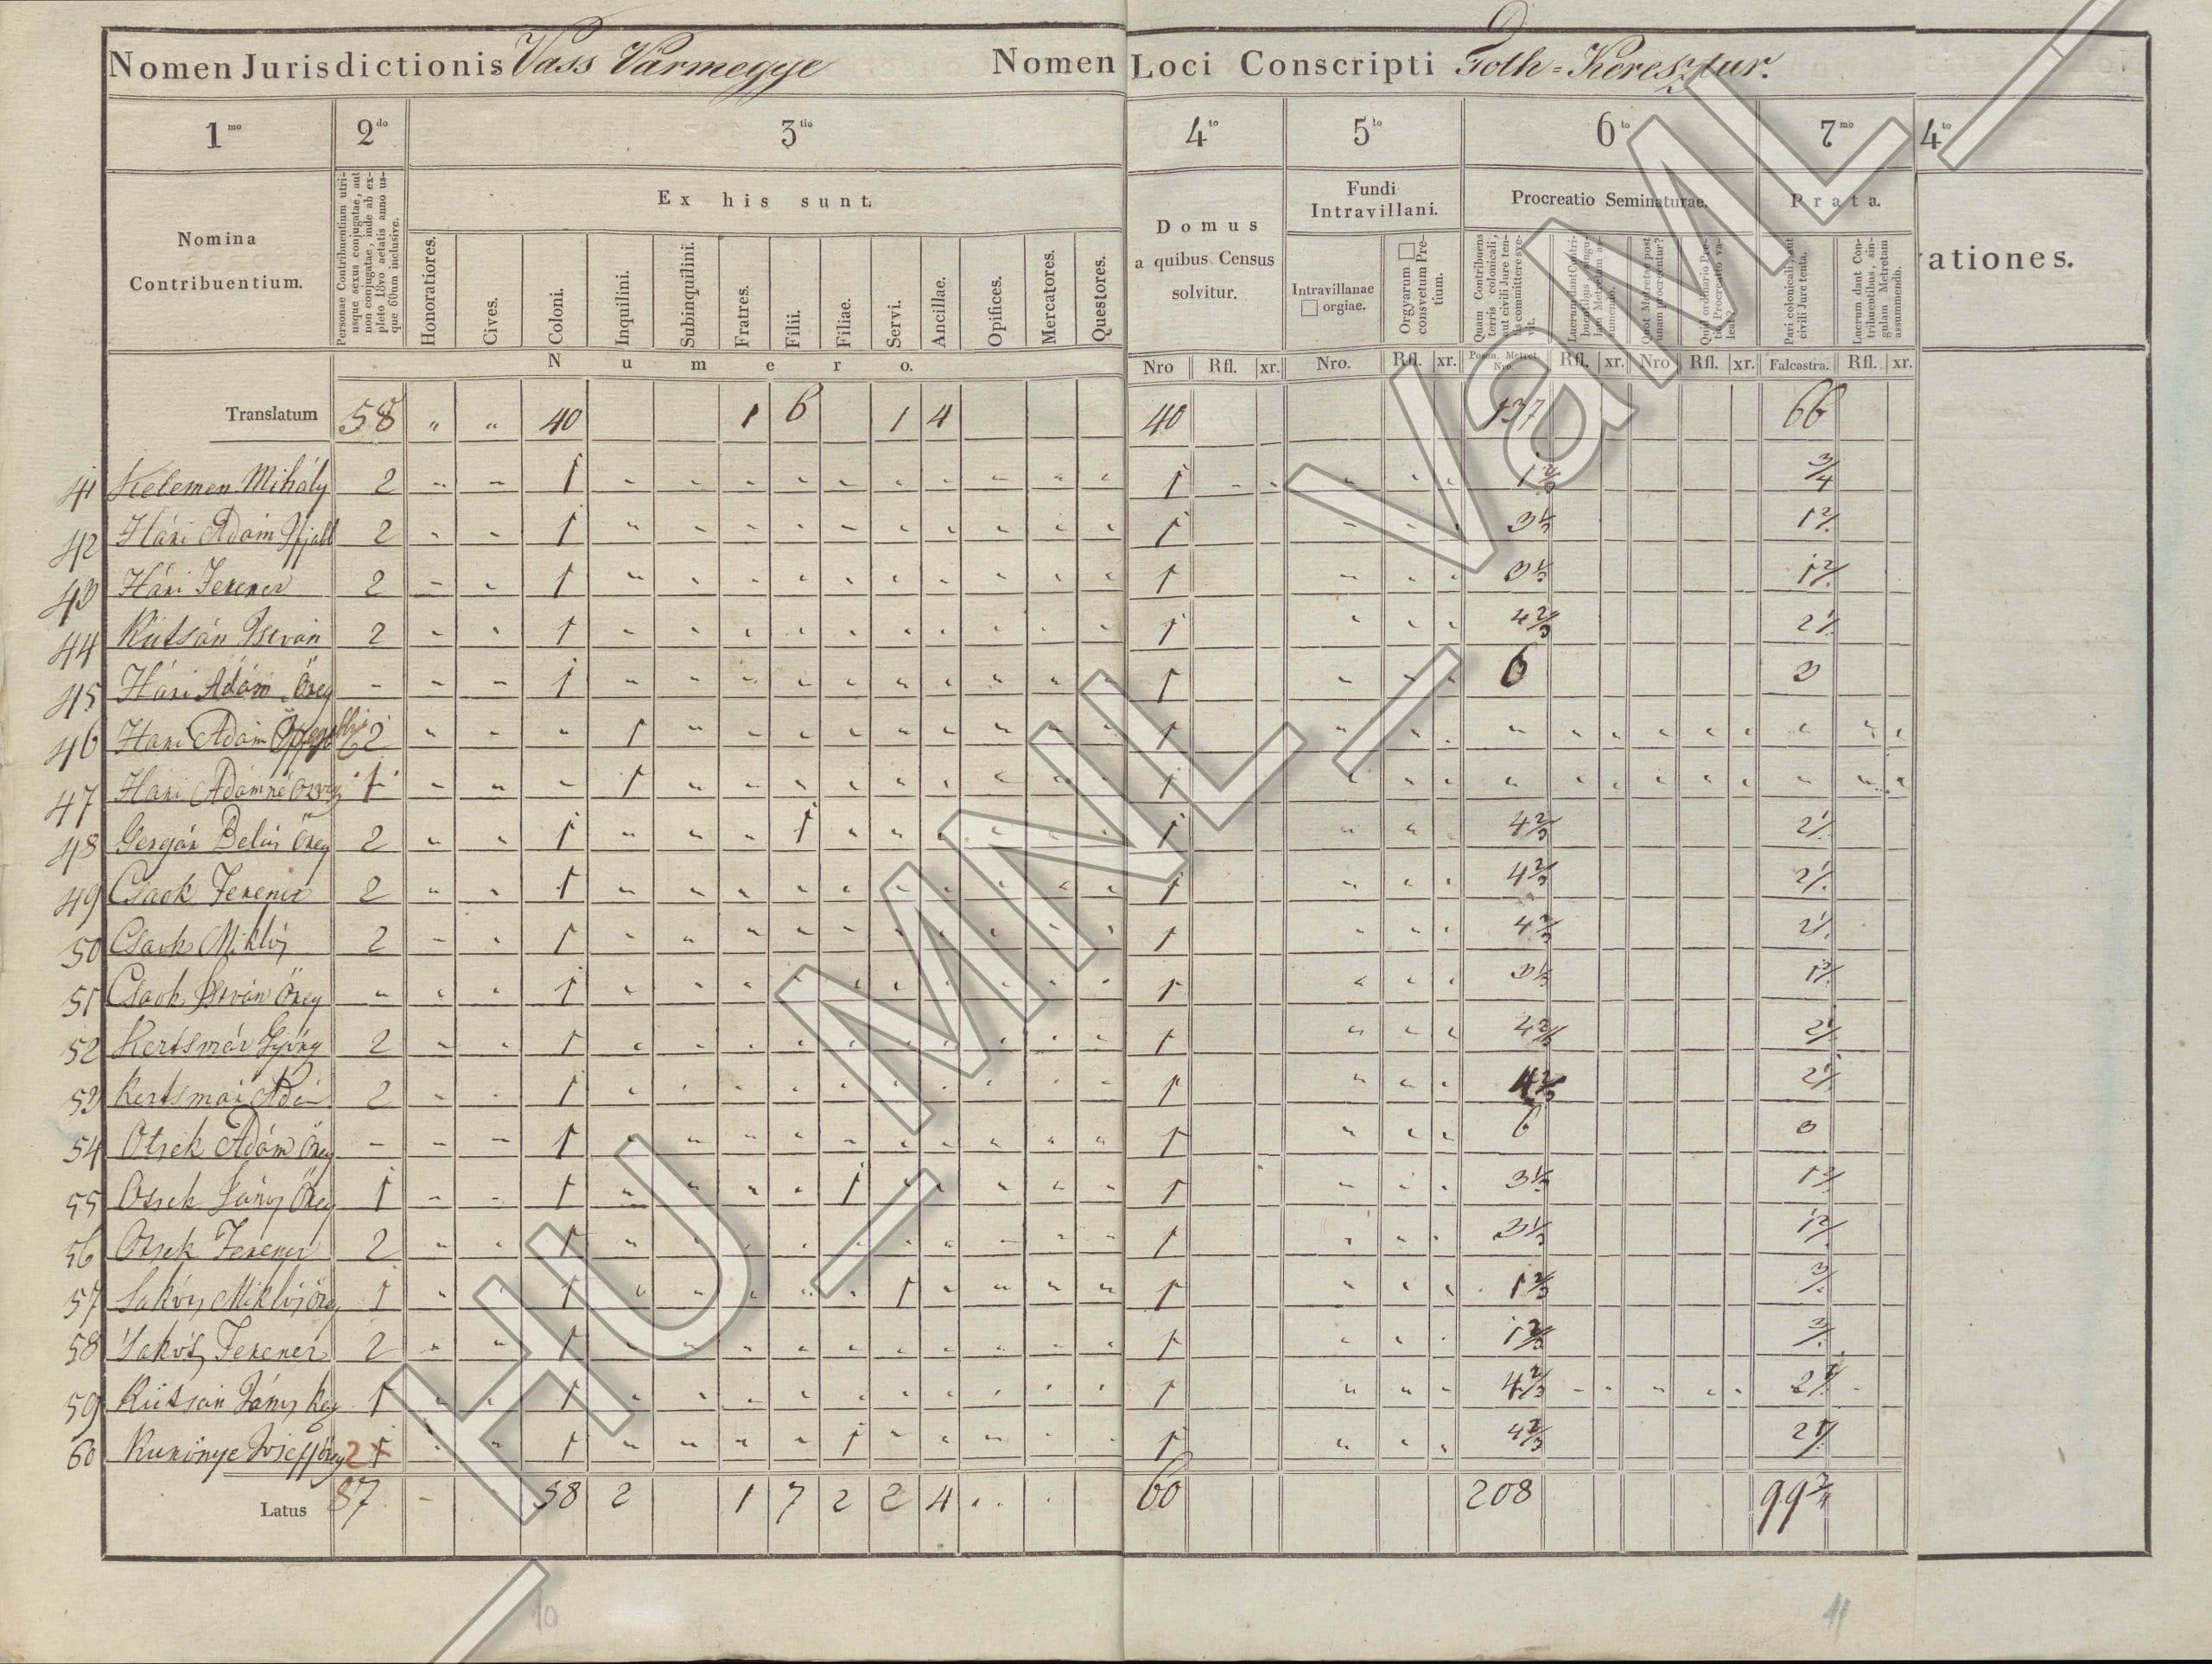 Nomen Jurisdictionis Vass Vármegye Nomen Loci Conscripti Toth=Keresztur.
1mo 2do 3tio 4to 5to 6to 7mo 4to
Nomina Contribuentium.
Personae Contribuentium utriusque sexus conjugatae, aut non conjugatae, inde ab expleto 18vo aetatis anno usque 60um inclusive.
Ex his sunt
Honoratiores. Cives. Coloni. Inquilini. Subinquilini. Fratres. Filii. Filiae. Servi. Ancillae. Opifices. Mercatores. Questores.
Numero.
Domus a quibus Census solvitur.
Fundi Intravillani.
Intravillanae □ orgiae.
Orgyarum □ consvetum Pretium.
Procreatio Seminaturae.
Quam Contribuens terris colonicali, aut civili Jure tentis committere svevit.
Prata.
Pari colonicali, aut civili Jure tenta.
Lucrum dant Contribuentibus, singulam Metretam assummendo.
rationes.
Nro Rfl. xr. Nro. Rfl. xr. Poson. Metret. Nro. Rfl. xr. Nro Rfl. xr. Falcastra. Rfl. xr.
Translatum 58 " " 40 1 6 1 4 40 137 66
41 Kelemen Mihály 2 1 1 1 2/3 3/4
42 Hári Adám Ifjabb 2 1 1 3 1/3 1 2/.
43 Hári Ferencz 2 1 1 3 1/3 1 2/.
44 Kütsán István 2 1 1 4 2/3 2 1/.
45 Hári Adám Öreg - 1 1 6 3
46 Hari Adám 2 1 1
47 Hári Adámné özvegy 1 1 1
48 Gergár Belás Öreg 2 1 1 1 4 2/3 2 1/.
49 Csaok Ferencz 2 1 1 4 2/3 2 1/.
50 Csaok Miklós 2 1 1 4 2/3 2 1/.
51 Csaok István Öreg " 1 1 3 1/3 1 2/.
52 Kertsmár György 2 1 1 4 2/3 2 1/.
53 Kertsmár Adám 2 1 1 4 2/3 2 1/.
54 Otsek Adám Öreg - 1 1 6 3
55 Otsek János Öreg 1 1 1 1 3 1/3 1 2/.
56 Otsek Ferencz 2 1 1 3 1/3 1 2/.
57 Sakós Miklós Öreg 1 1 1 1 1 2/3 3/.
58 Sakós Ferencz 2 1 1 1 2/3 3/.
59 Kütsán János 1 1 1 4 2/3 2 1/.
60 Kukönye Josef Öreg 2 1 1 1 1 4 2/3 2 1/.
Latus 87 - 58 2 1 7 2 2 4 60 208 99 3/4
10 11
HU_MNL_VaML_